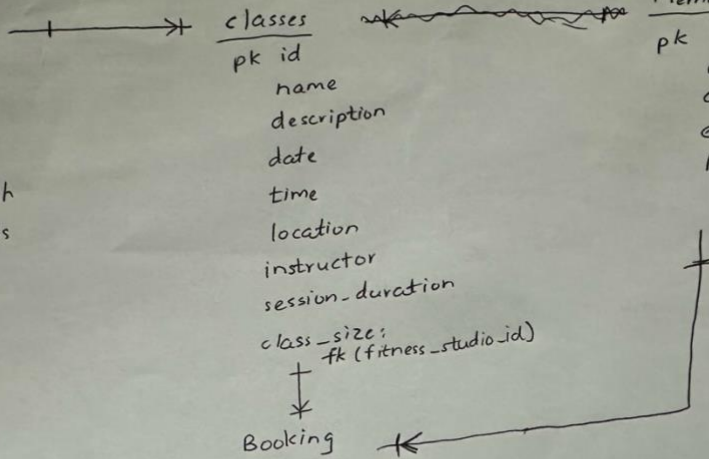 classes
pk id
pk
name
description
date
time
location
instructor
session_duration
class_size:
fk (fitness_studio_id)
Booking